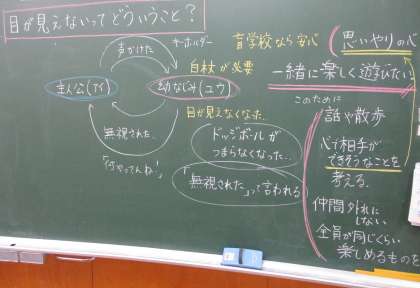 目が見えないってどういうこと?
声かけた
キーホルダー
盲学校なら安心
思いやりの心
白杖が必要
一緒に楽しく遊びたい
主人公(アイ)
幼なじみ(ユウ)
このために
目が見えなくなった…
話や散歩
無視された…
ドッジボールが
つまらなくなった…
心で相手が
できそうなことを
考える
「何やってんね!」
「無視された」って言われる
仲間外れに
しない
全員が同じくらい
楽しめるものを